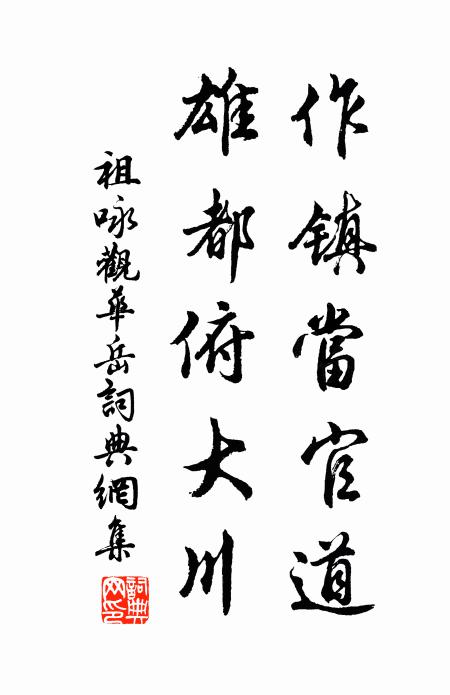 作鎮當官道
雄都俯大川
祖咏觀華岳詞典網集
詞典
网印